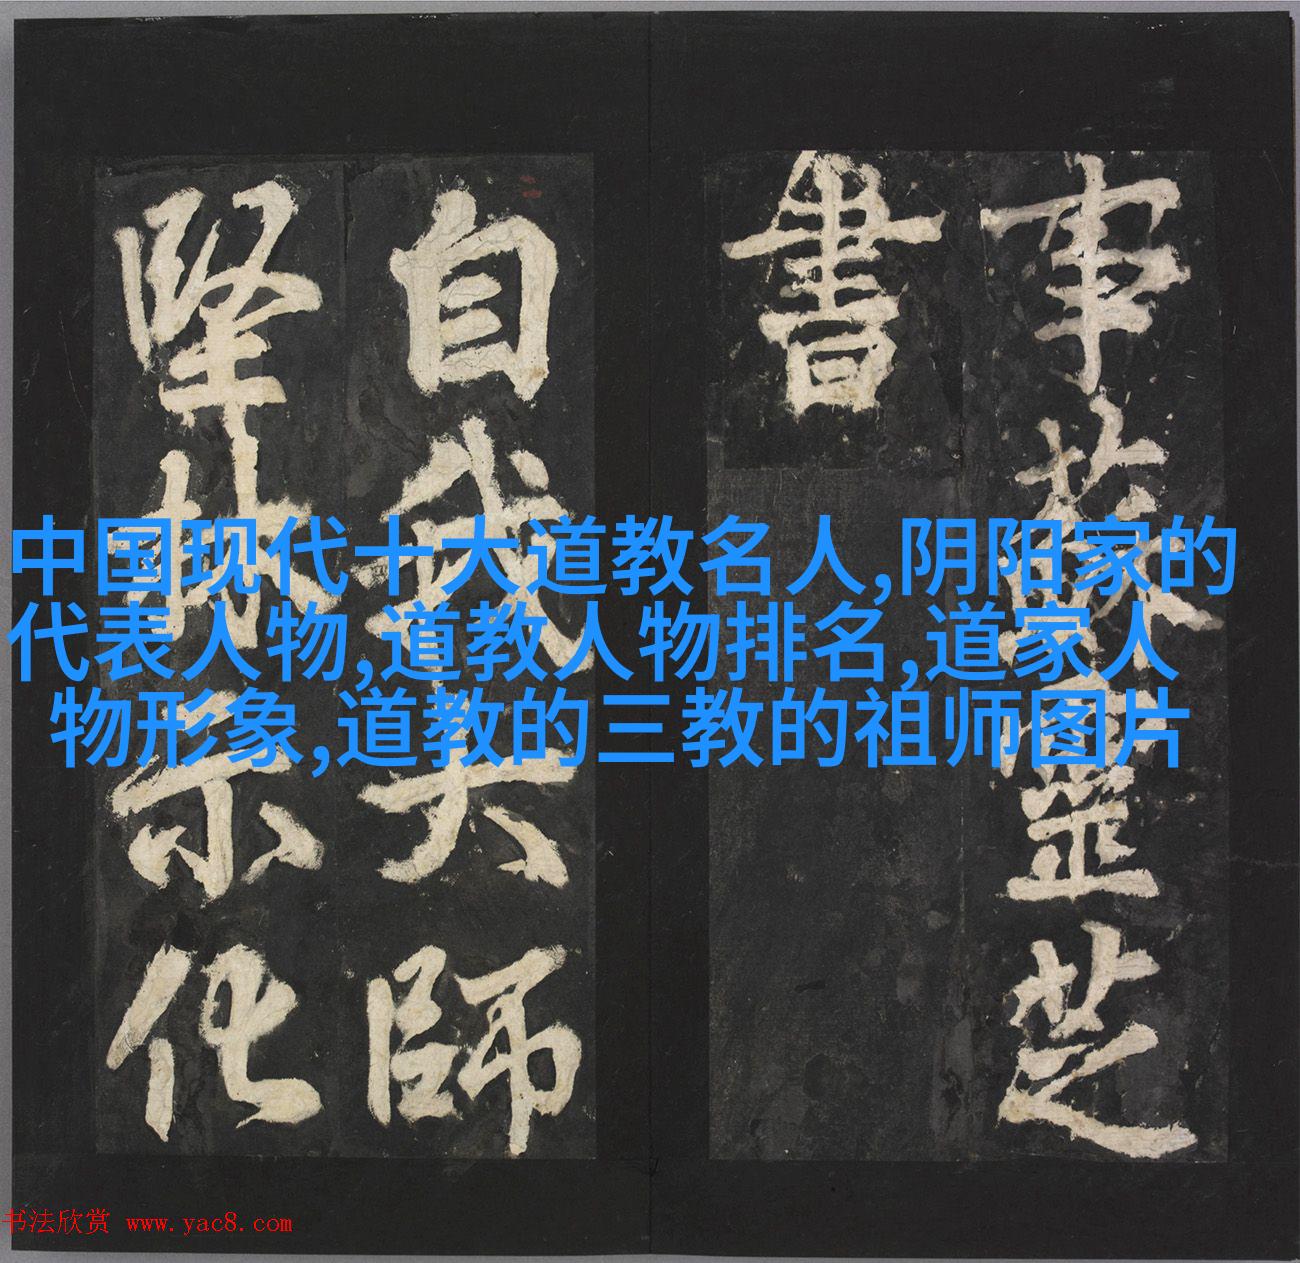 事蘇靈芝
書
自我大師
堅林示化
中国现代十大道教名人,阴阳家的
代表人物,道教人物排名,道家人
物形象,道教的三教的祖师图片
书法欣赏 www.yac8.com